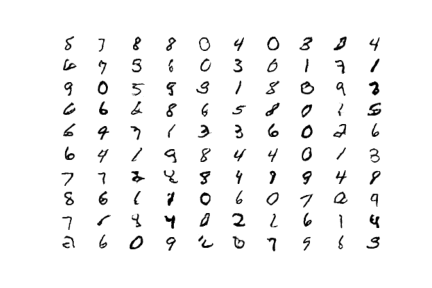 8 7 8 8 0 4 0 3 2 4
6 7 5 6 0 3 0 1 7 1
9 0 5 8 3 1 8 0 9 2
6 6 6 8 6 5 8 0 1 5
6 9 7 1 3 3 6 0 2 6
6 4 1 9 8 4 4 0 1 3
7 7 2 4 8 4 9 9 4 8
8 6 1 1 0 6 0 7 2 9
7 8 4 0 2 2 6 1 4
2 6 0 9 2 0 7 9 6 3